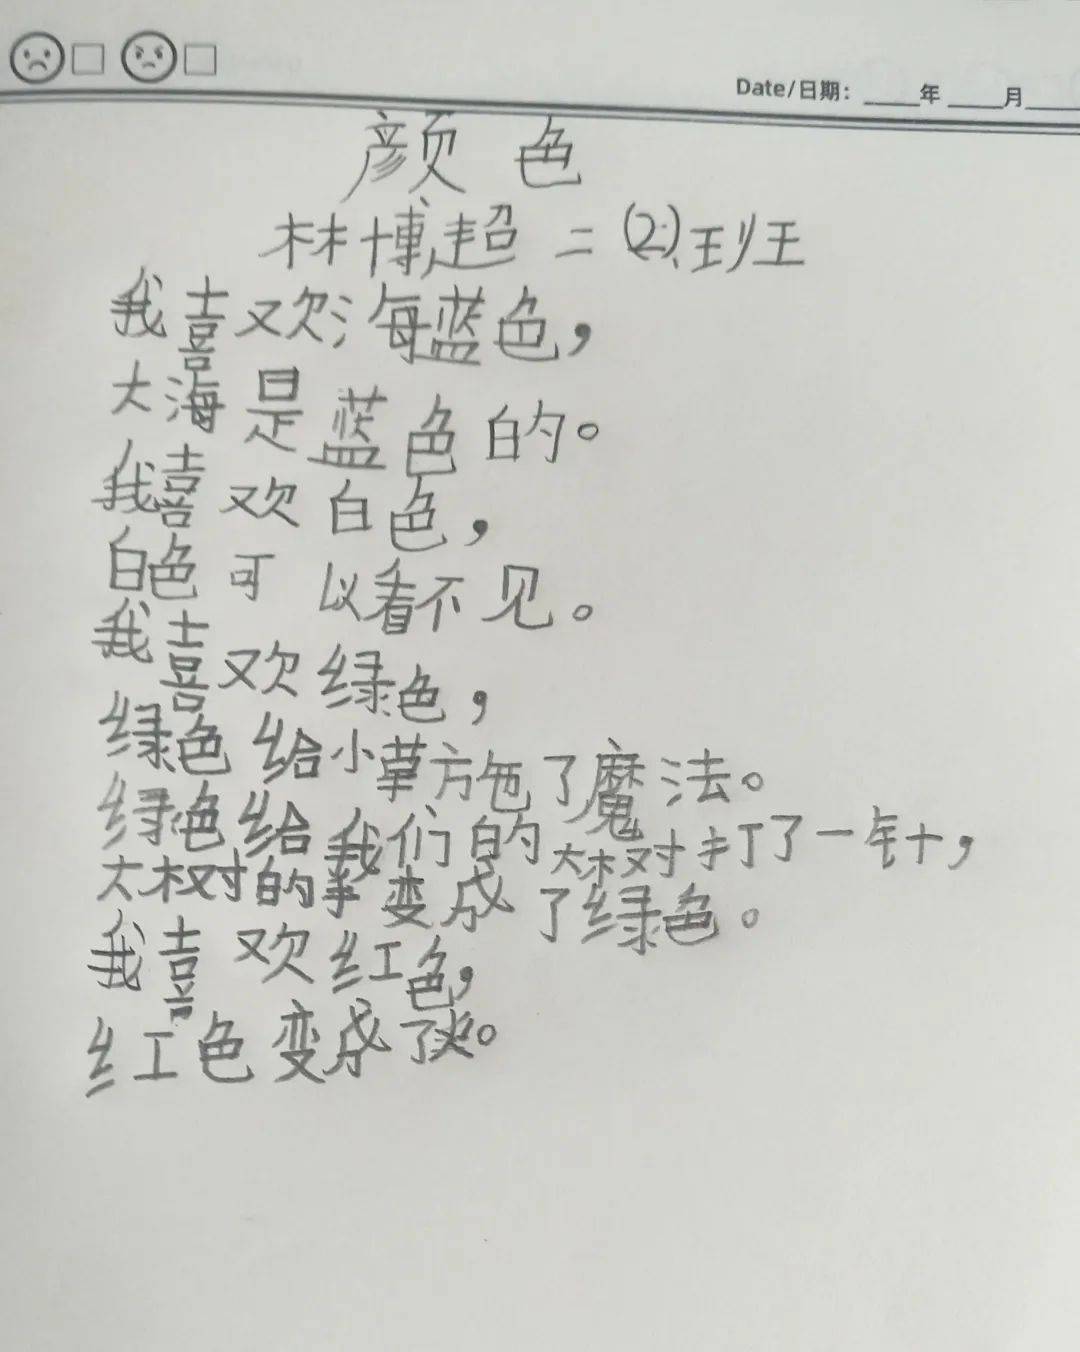 Date/日期: ____年____月____
颜色
林博超 二(2)班
我喜欢海蓝色，
大海是蓝色的。
我喜欢白色，
白色可以看不见。
我喜欢绿色，
绿色给小草方包了魔法。
绿色给我们的大树打了一针，
大树的掌变成了绿色。
我喜欢红色，
红色变成了火。